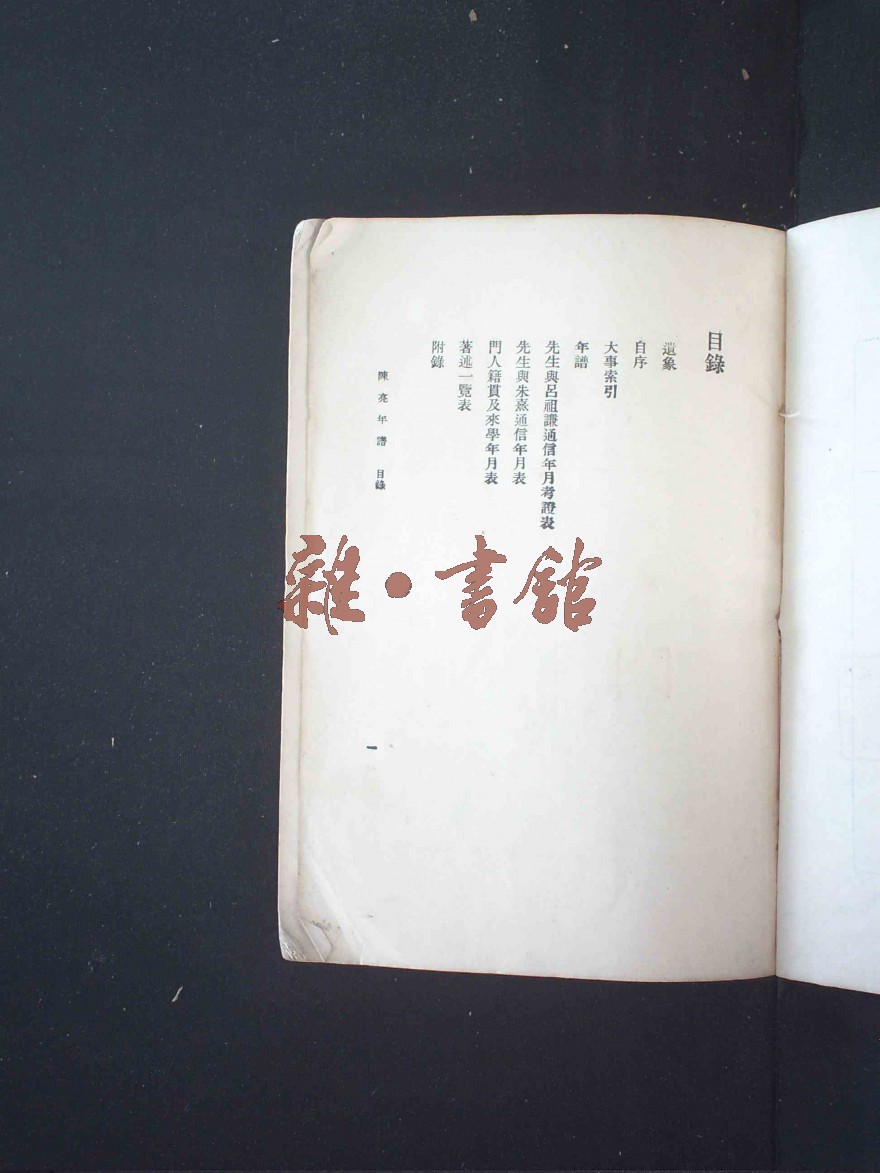 目錄
遺象
自序
大事索引
年譜
先生與呂祖謙通信年月考證表
先生與朱熹通信年月表
門人籍貫及來學年月表
著述一覽表
附錄
陳亮年譜 目錄
一
雜·書館